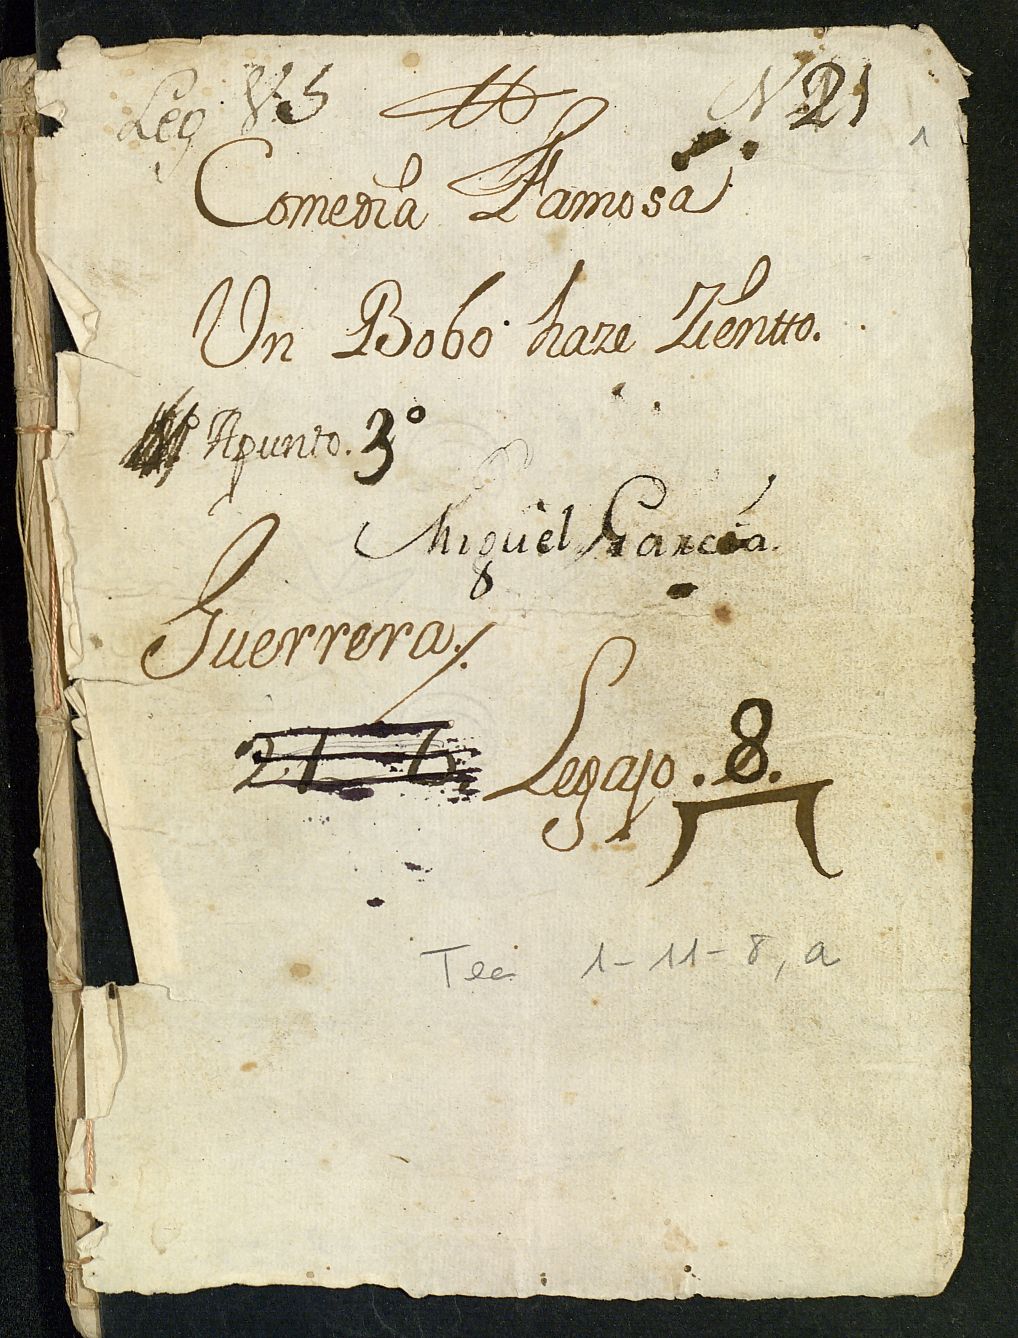 Leg 5 N 21
1
Comedia Famosa
Un Bobo haze Zientto.
Apunto. 3º
Miguel Garcia.
Guerrera.
21 6 Legajo. 8.
Tea 1-11-8, a